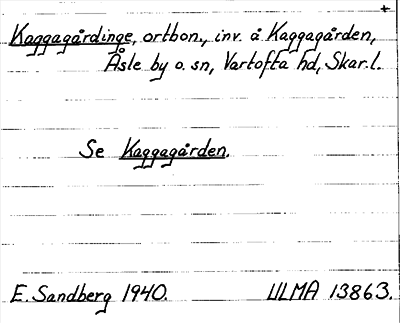 +
Kaggagårdinge, ortbon., inv. å Kaggagården,
Åsle by o. sn, Vartofta hd, Skar. l.
Se Kaggagården.
E. Sandberg 1940. ULMA 13863.